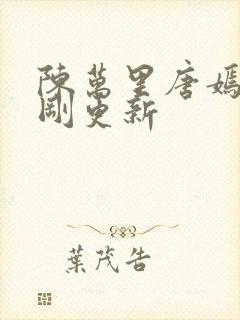 陳萬里唐嫣
剛更新
葉茂告